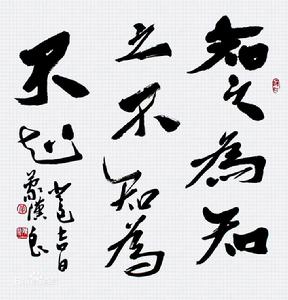 知之為知
之不知為
不知
吉日